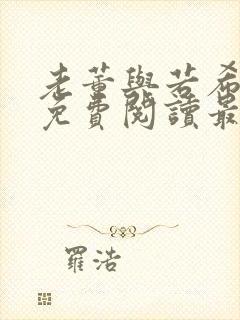 老董與若希
免費閱讀最
羅浩